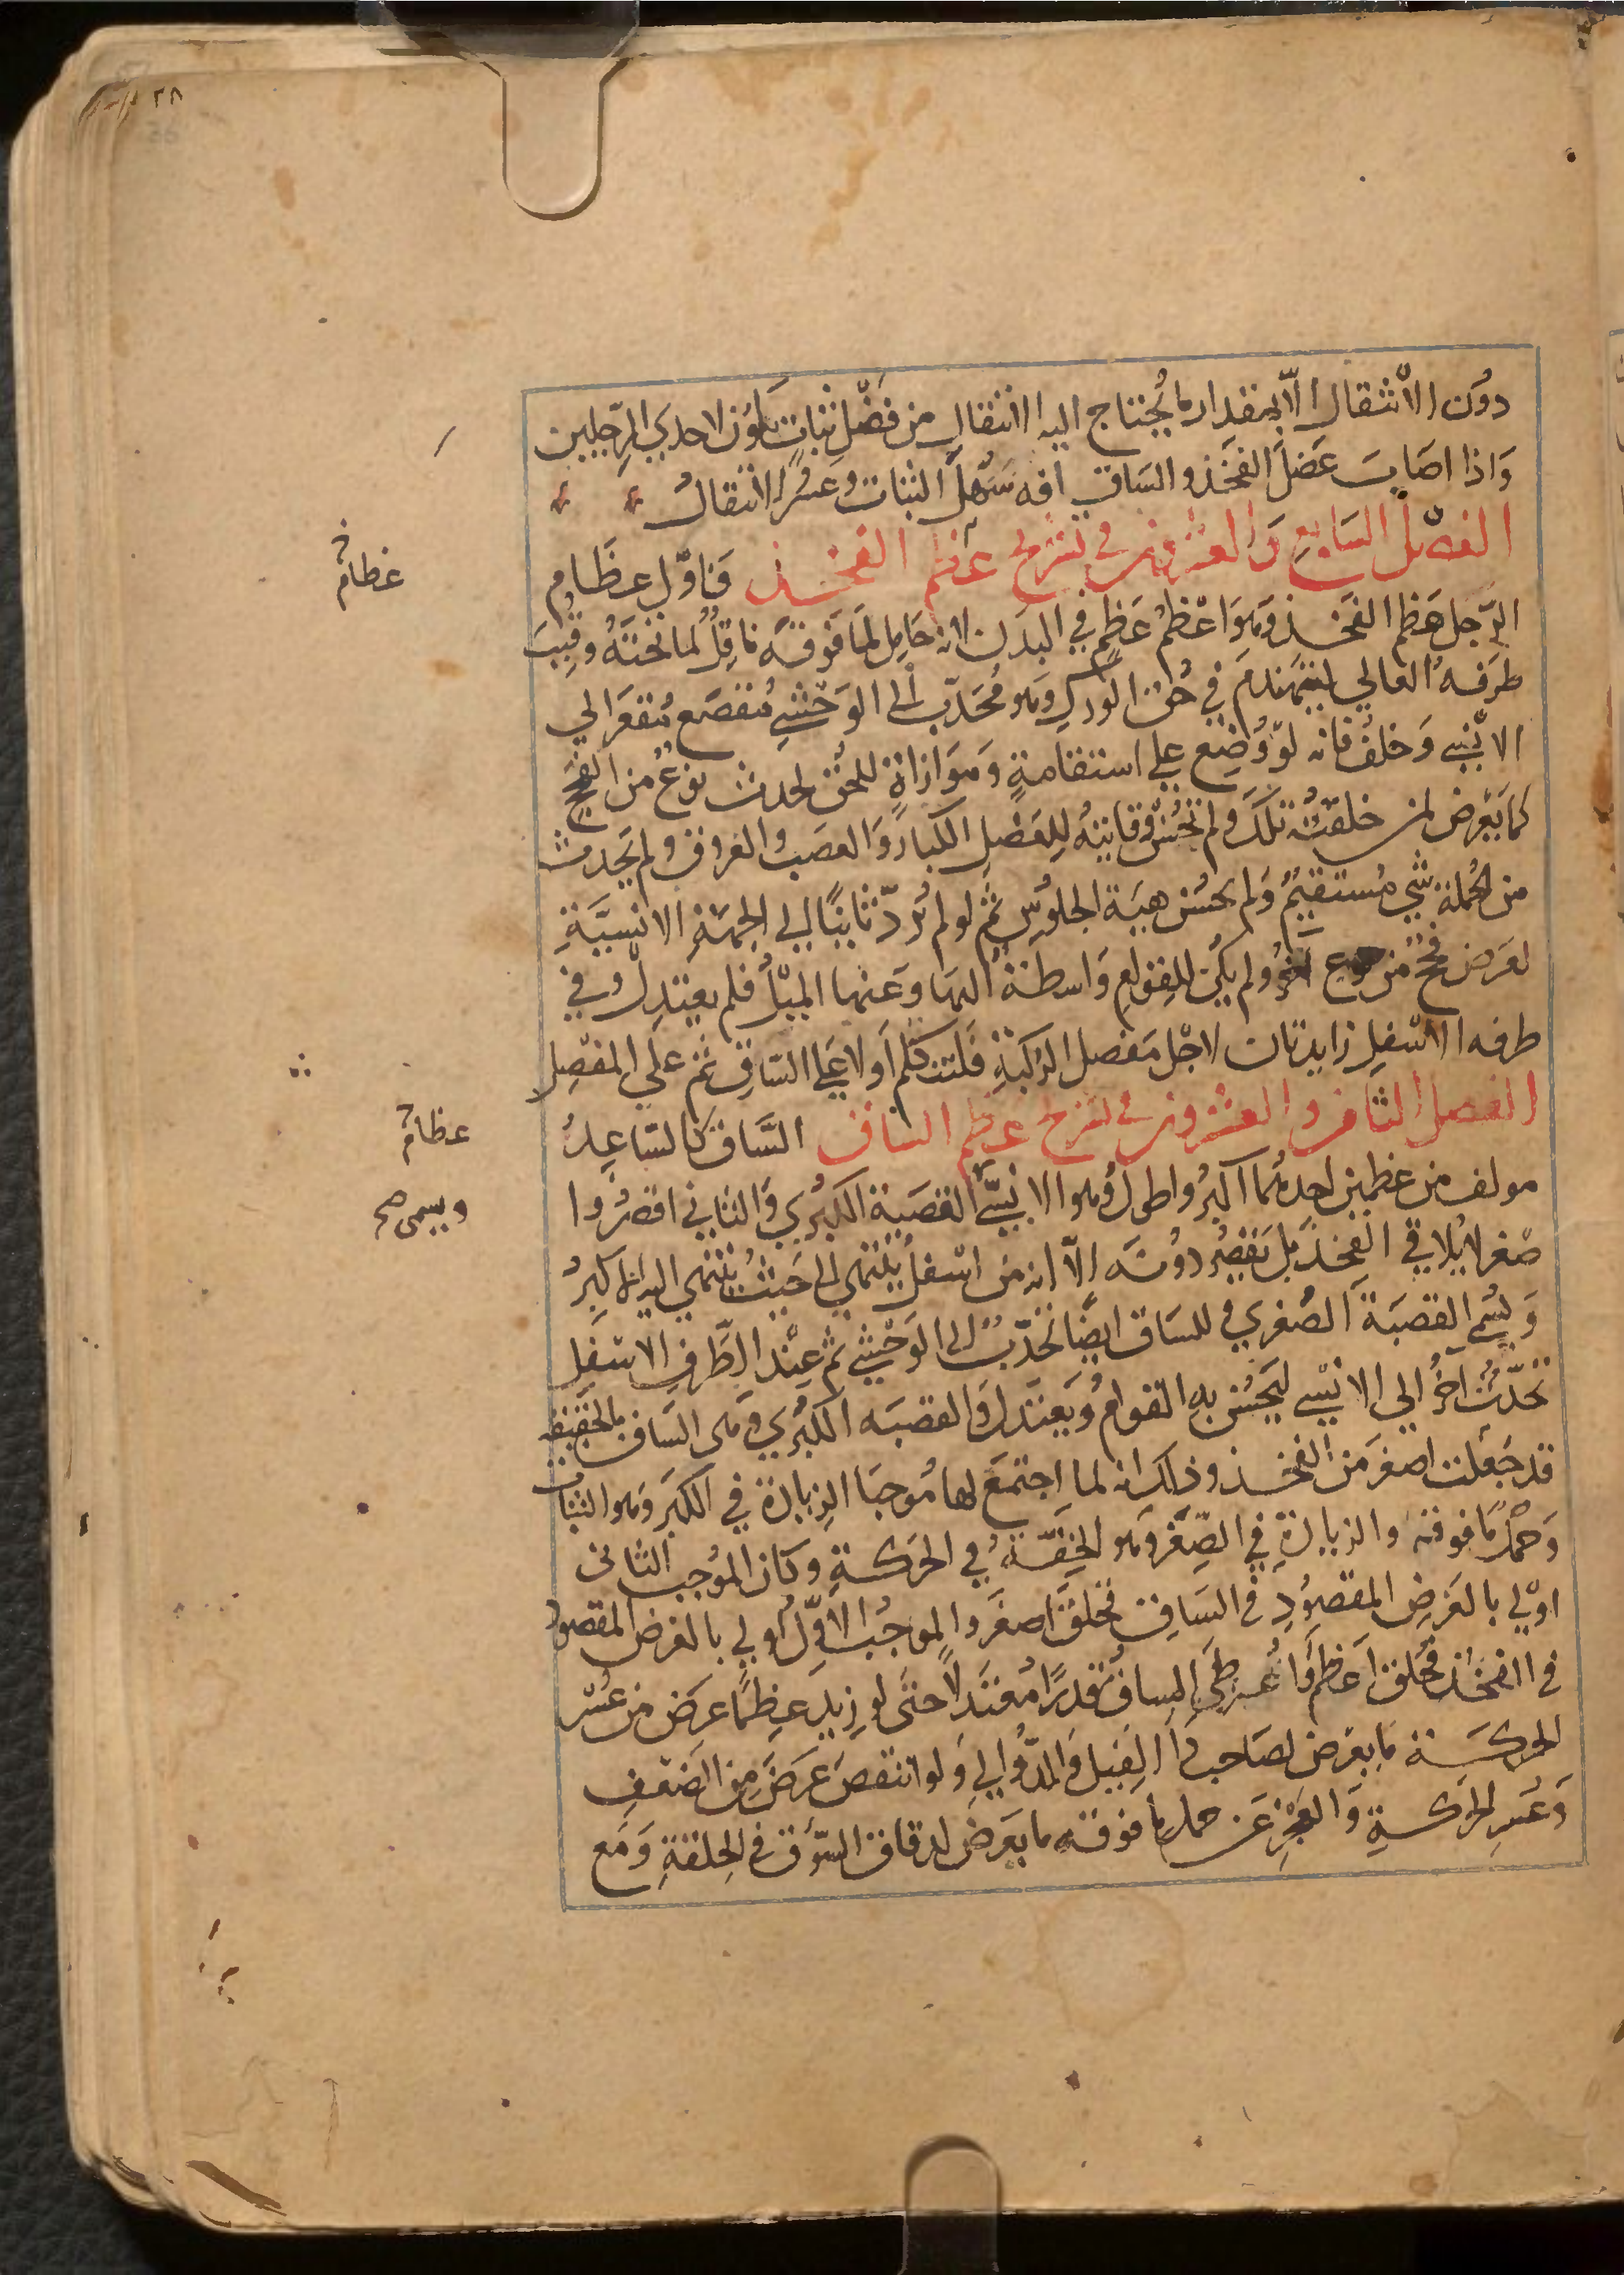 ٣٨
دون الانتقال الا بمقدار ما يحتاج اليه الانتقال من فضل ثبات يكون لاحدي الرجلين
واذا اصابت عضل الفخذ والساق افه سهل الثبات وعسر الانتقال
الفصل السابع والعشرون في تشريح عظم الفخذ فاول عظام
عظام
الرجل عظم الفخذ وهو اعظم عظم في البدن لانه حامل لما فوقه ناقل لما تحته وقبب
طرفه العالي ليتهندم في حق الورك وهو محدب الى الوحشي مقصع مقعر الي
الانسي وخلف فانه لو وضع علي استقامة وموازاة للحق لحدث نوع من الفحج
كما يعرض لمن خلقته تلك ولم تحسن وقايته للعضل الكبار والعصب والعروق ولم يحدث
من الجملة شي مستقيم ولم يحسن هيية الجلوس ثم لو لم يرد ثانيا الي الجهة الانسية
لعرض فحج من نوع اخر ولم يكن للقوام واسطة اليها وعنها الميل فلم يعتدل وفي
طرفه الاسفل زايدتان لاجل مفصل الركبة فلنتكلم اولا علي الساق ثم علي المفصل
الفصل الثامن والعشرون في تشريح عظم الساق الساق كالساعد
عظام
مولف من عظمين احدهما اكبر واطول وهو الانسي القصبة الكبري والثاني اقصر وا
ويسمى صح
صغر لا يلاقي الفخذ بل يقصر دونه الا انه من اسفل ينتهي الى حيث ينتهي اليه الاكبر
ويسمي القصبة الصغري وللساق ايضا تحدب الى الوحشي ثم عند الطرف الاسفل
تحدب اخر الي الانسي ليحسن به القوام ويعتدل والقصبه الكبري وهى الساق بالحقيقه
قد جعلت اصغر من الفخذ وذلك انه لما اجتمع لها موجبا الزيادة في الكبر وهو الثبات
وحمل ما فوقه والزيادة في الصغر وهو الخفة في الحركة وكان الموجب الثانى
اولي بالغرض المقصود في الساق فخلق اصغر والموجب الاول اولي بالغرض المقصود
في الفخذ فخلق اعظم واعطي الساق قدرا معتدلا حتى لو زيد عظما عرض من عسر
الحركة ما يعرض لصاحب دا الفيل والدوالي ولو انتقص عرض من الضعف
وعسر الحركة والعجز عن حمل ما فوقه ما يعرض لدقاق السوق في الخلقة ومع